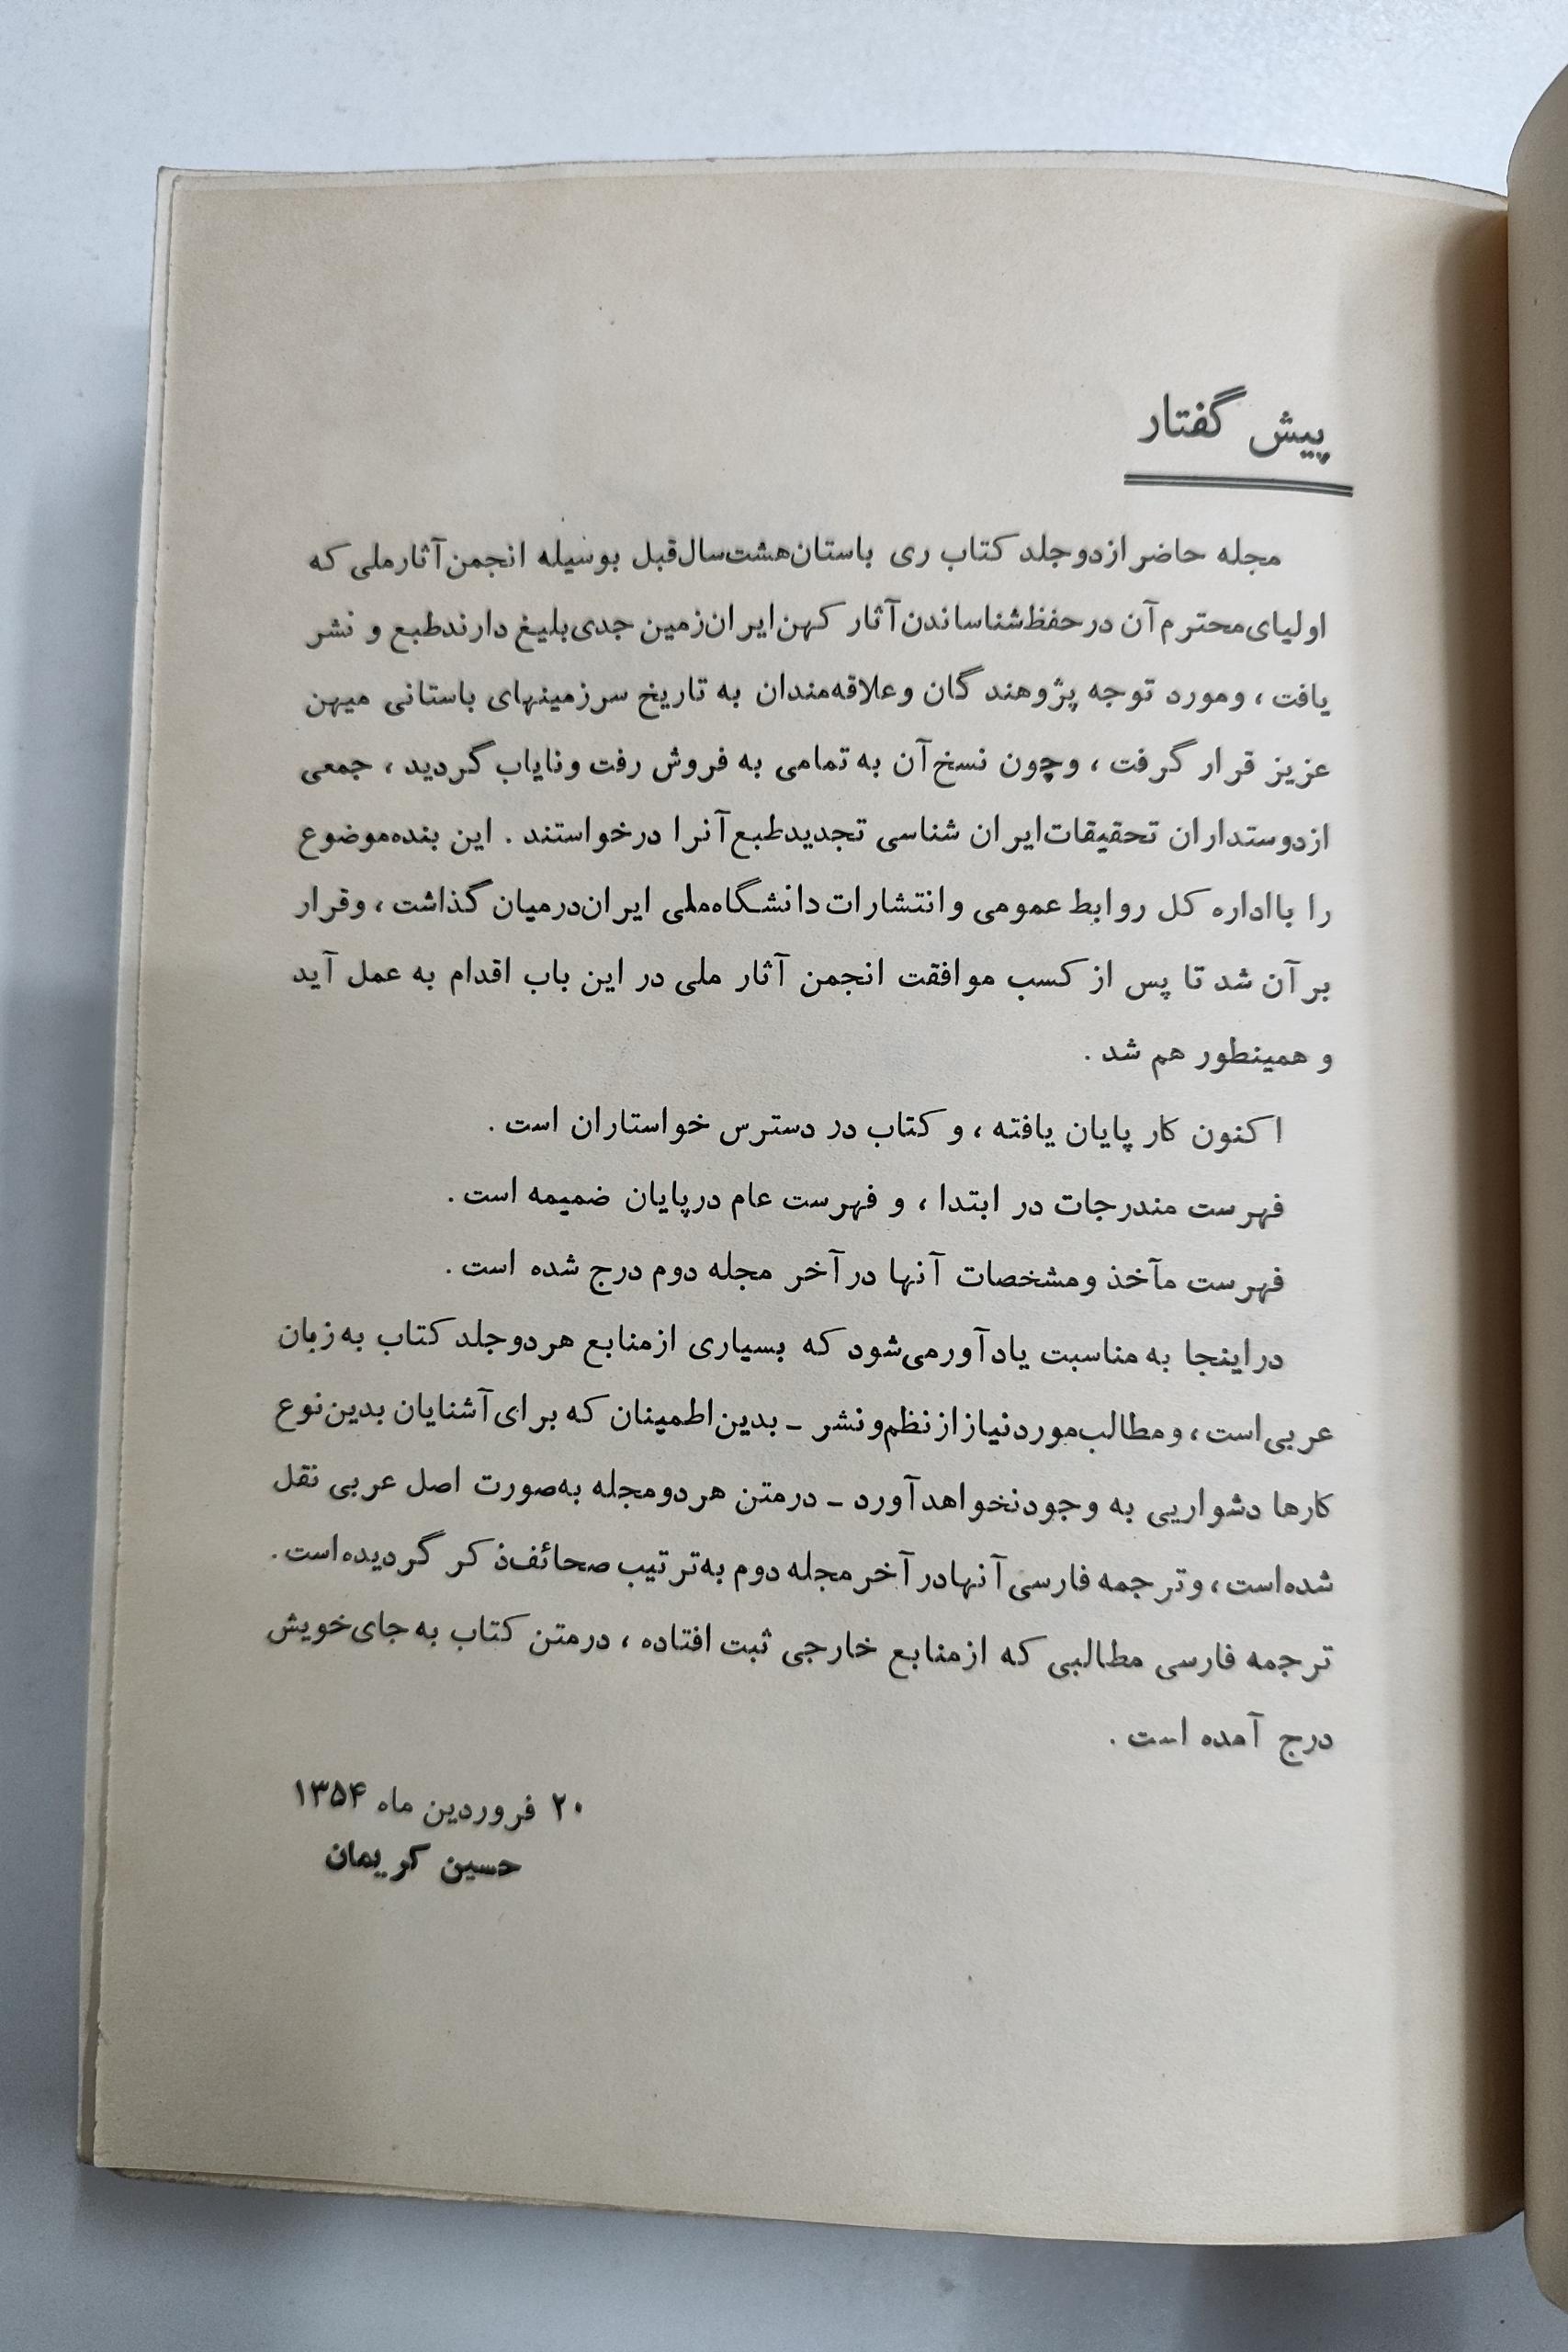 پیش گفتار
مجله حاضر از دو جلد کتاب ری باستان هشت سال قبل بوسیله انجمن آثار ملی که
اولیای محترم آن در حفظ شناساندن آثار کهن ایران زمین جدی بلیغ دارند طبع و نشر
یافت ، و مورد توجه پژوهندگان و علاقه‌مندان به تاریخ سرزمینهای باستانی میهن
عزیز قرار گرفت ، و چون نسخ آن به تمامی به فروش رفت و نایاب گردید ، جمعی
از دوستداران تحقیقات ایران شناسی تجدید طبع آنرا درخواستند . این بنده موضوع
را با اداره کل روابط عمومی و انتشارات دانشگاه ملی ایران درمیان گذاشت ، و قرار
بر آن شد تا پس از کسب موافقت انجمن آثار ملی در این باب اقدام به عمل آید
و همینطور هم شد .
اکنون کار پایان یافته ، و کتاب در دسترس خواستاران است .
فهرست مندرجات در ابتدا ، و فهرست عام در پایان ضمیمه است .
فهرست مآخذ و مشخصات آنها در آخر مجله دوم درج شده است .
در اینجا به مناسبت یادآور می‌شود که بسیاری از منابع هر دو جلد کتاب به زبان
عربی است ، و مطالب مورد نیاز از نظم و نشر ـ بدین اطمینان که برای آشنایان بدین نوع
کارها دشواریی به وجود نخواهد آورد ـ در متن هر دو مجله به صورت اصل عربی نقل
شده است ، و ترجمه فارسی آنها در آخر مجله دوم به ترتیب صحائف ذکر گردیده است .
ترجمه فارسی مطالبی که از منابع خارجی ثبت افتاده ، در متن کتاب به جای خویش
درج آمده است .
۲۰ فروردین ماه ۱۳۵۴
حسین کریمان